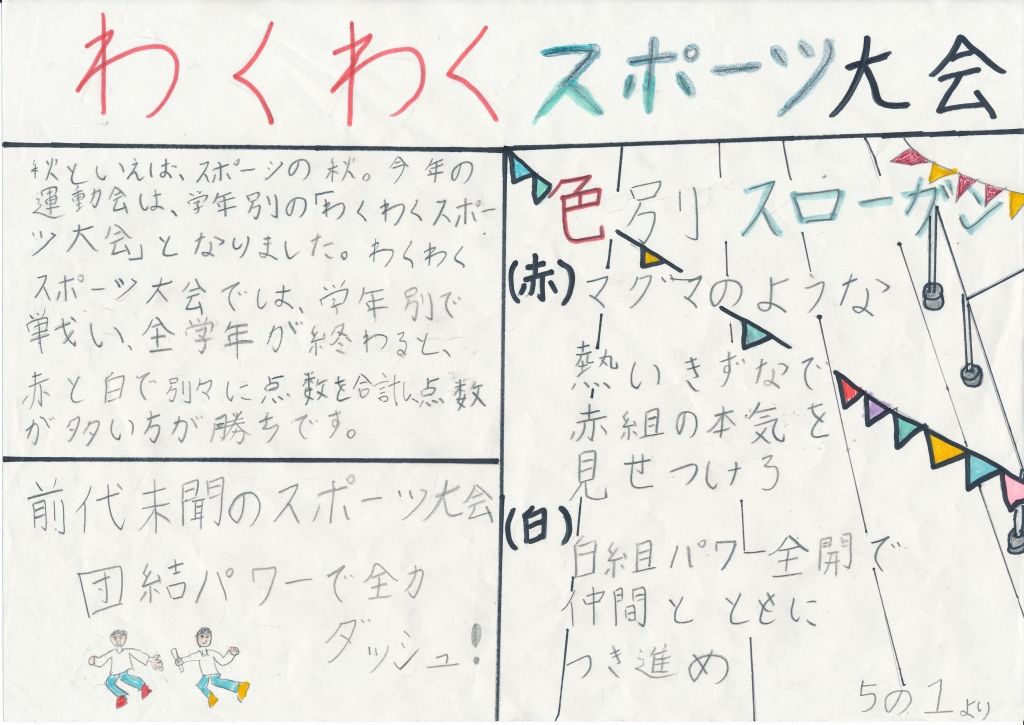 わくわくスポーツ大会
秋といえば、スポーツの秋。今年の
運動会は、学年別の「わくわくスポー
ツ大会」となりました。わくわく
スポーツ大会では、学年別で
戦い、全学年が終わると、
赤と白で別々に点数を合計し、点数
が多い方が勝ちです。
前代未聞のスポーツ大会
団結パワーで全力
ダッシュ!
色別スローガン
(赤)マグマのような
熱いきずなで
赤組の本気を
見せつけろ
(白)白組パワー全開で
仲間とともに
つき進め
5の1より